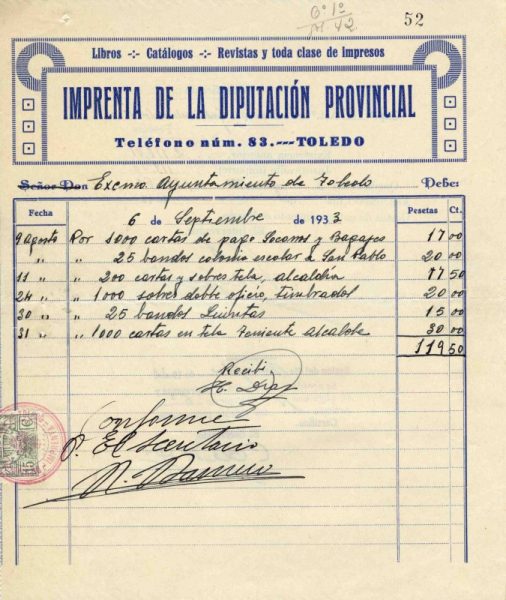 52
Libros -:- Catálogos -:- Revistas y toda clase de impresos
IMPRENTA DE LA DIPUTACIÓN PROVINCIAL
Teléfono núm. 83.---TOLEDO
Señor Don Excmo Ayuntamiento de Toledo Debe:
Fecha 6 de Septiembre de 1933 Pesetas Ct.
9 Agosto Por 1000 cartas de pago Socorros y Bagajes 17 00
" " " 25 bandos colonia escolar a San Pablo 20 00
11 " " 200 cartas y sobres tela, alcaldía 17 50
24 " " 1000 sobres doble oficio, timbrados 20 00
30 " " 25 bandos Quintas 15 00
31 " " 1000 cartas en tela Teniente Alcalde 30 00
119 50
Recibí
H. Díaz
Conforme
El Secretario